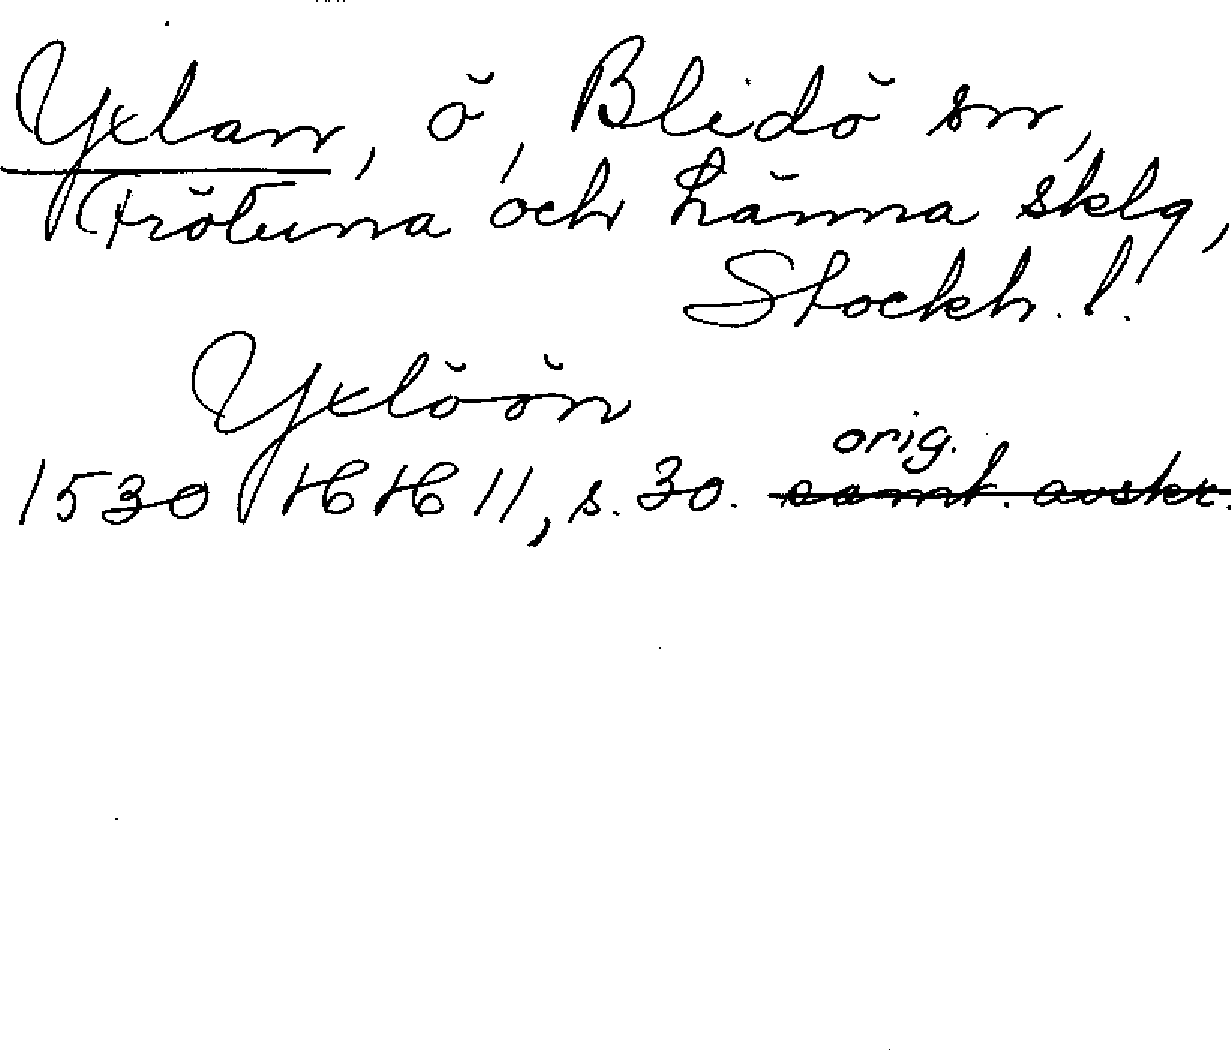 Yxlan, ö, Blidö sn,
Frötuna och Länna sklg,
Stockh. l.
Yxlöön
orig.
1530 HH 11, s. 30. samt. avskr.